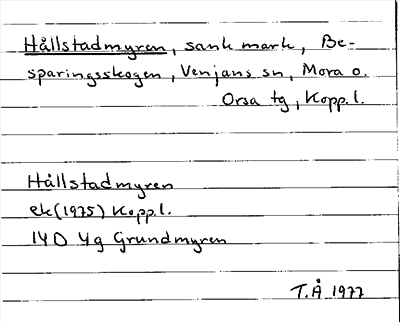 Hållstadmyren, sank mark, Be-
sparingsskogen, Venjans sn, Mora o.
Orsa tg, Kopp.l.
Hållstadmyren
ek(1975) Kopp.l.
14D 4g Grundmyren
T.Å 1977